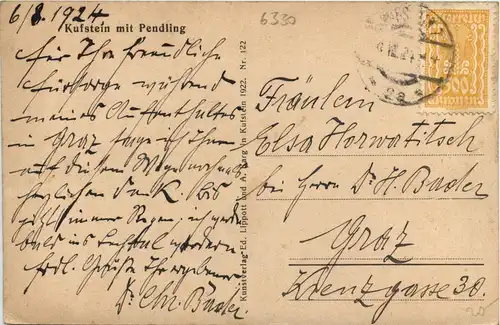 6/8. 1924
Kufstein mit Pendling
6330
für Ihre freundliche
Fürsorge während
meines Aufenthaltes
in Graz sage ich Ihnen
auf diesem Wege nochmals
herzlichen Dank. bis
jetzt immer Regen, ich werde
bald ins
frdl. Grüße Ihr ergebener
Dr. Chr. Bader.
Kunstverlag Ed. Lippott und A. Karg in Kufstein 1922. Nr. 122
Österreich
500
Kronen
Fräulein
Elsa Horwatitsch
bei Herrn Dr. H. Bader
Graz
Kreuzgasse 30.
20